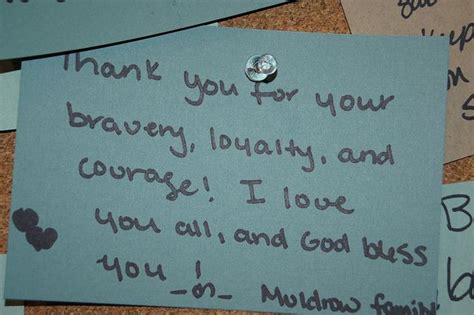 Thank you for your
bravery, loyalty, and
courage! I love
you all, and God bless
you
Muldrow family
B